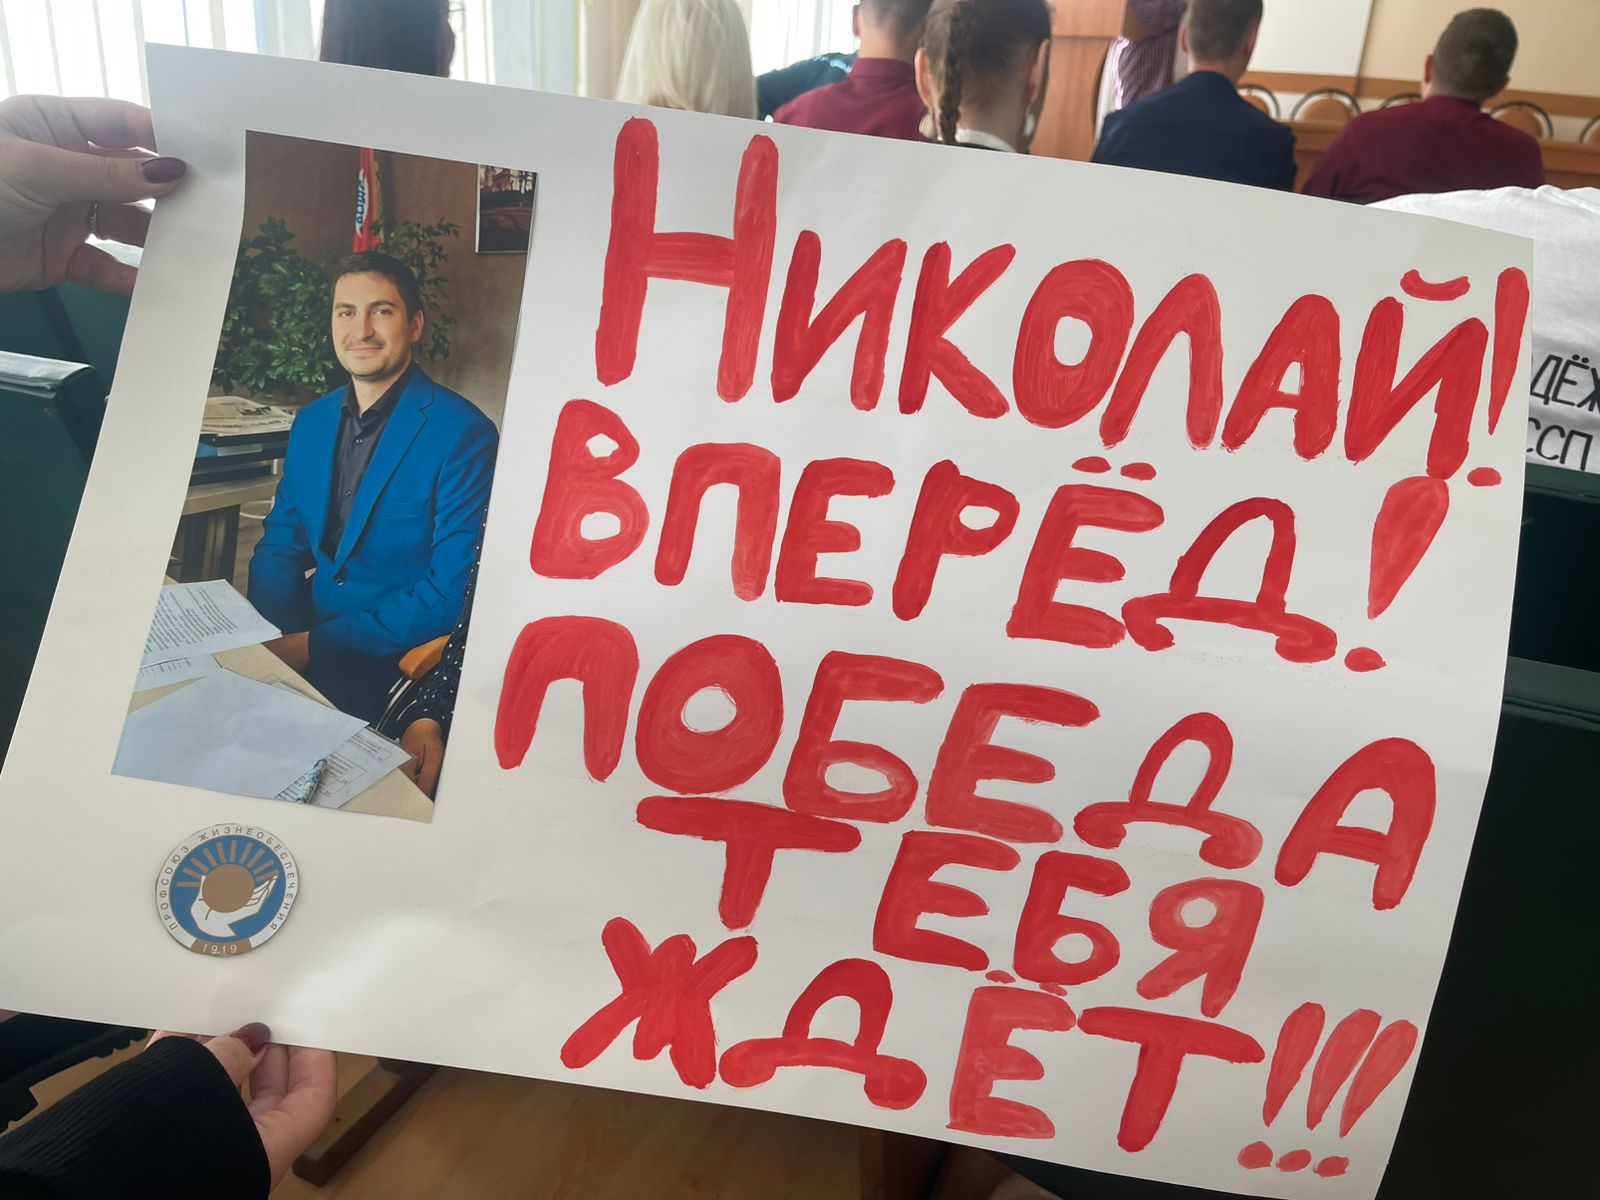 НИКОЛАЙ!
ВПЕРЁД!
ПОБЕДА
ТЕБЯ
ЖДЁТ!!!
ПРОФСОЮЗ ЖИЗНЕОБЕСПЕЧЕНИЯ
1919